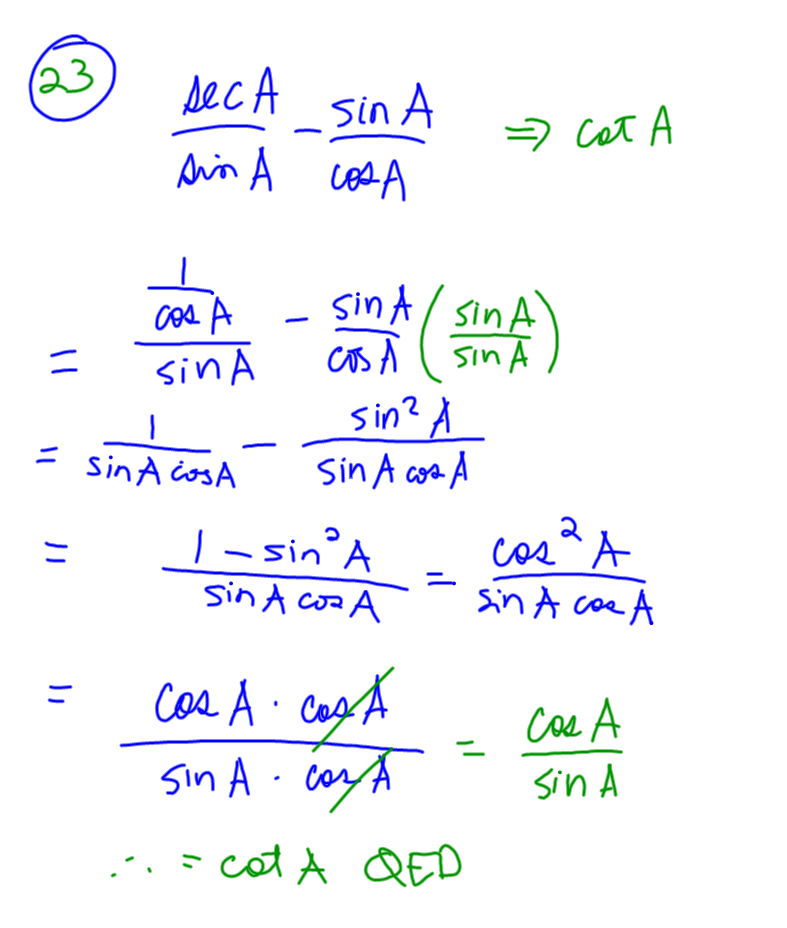 23
sec A / sin A − sin A / cos A ⇒ cot A
= (1 / cos A) / sin A − sin A / cos A (sin A / sin A)
= 1 / sin A cos A − sin² A / sin A cos A
= 1 − sin² A / sin A cos A = cos² A / sin A cos A
= cos A · cos A / sin A · cos A = cos A / sin A
∴ = cot A QED